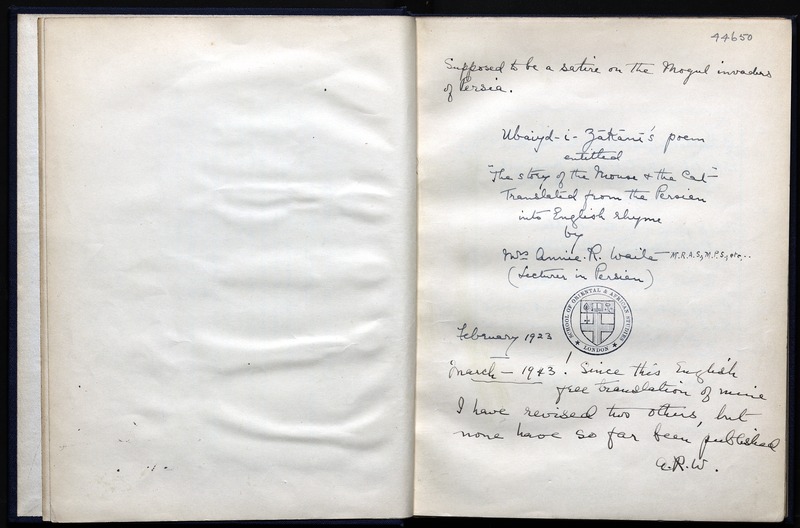 44650
Supposed to be a satire on the Mogul invaders
of Persia.
Ubaiyd-i-Zākānī's poem
entitled
"The story of the Mouse & the Cat"
Translated from the Persian
into English rhyme
by
Mrs Annie. R. Waite M.R.A.S, M.P.S., etc..
(Lecturer in Persian)
SCHOOL OF ORIENTAL & AFRICAN STUDIES
LONDON
February 1923
March — 1943! Since this English
free translation of mine
I have revised two others, but
none have so far been published
A.R.W.